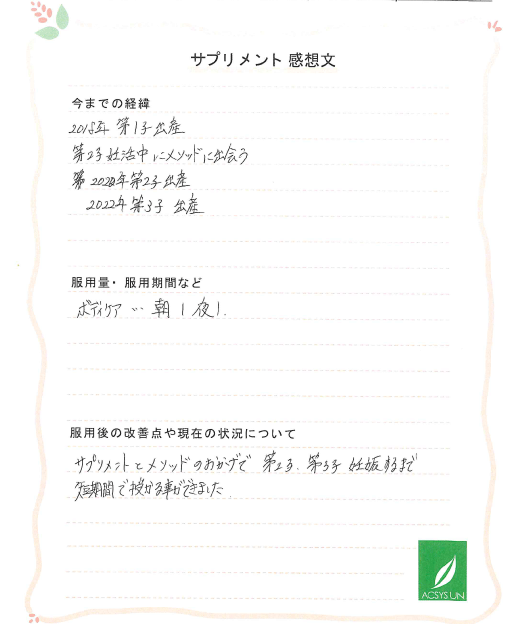 サプリメント 感想文
今までの経緯
2018年 第1子出産
第2子妊活中にメソッドに出会う
第 2020年第2子出産
2022年第3子 出産
服用量・服用期間など
ボディケア … 朝1 夜1.
服用後の改善点や現在の状況について
サプリメントとメソッドのおかげで 第2子、第3子 妊娠するまで
短期間で授かる事ができました.
ACSYS UN